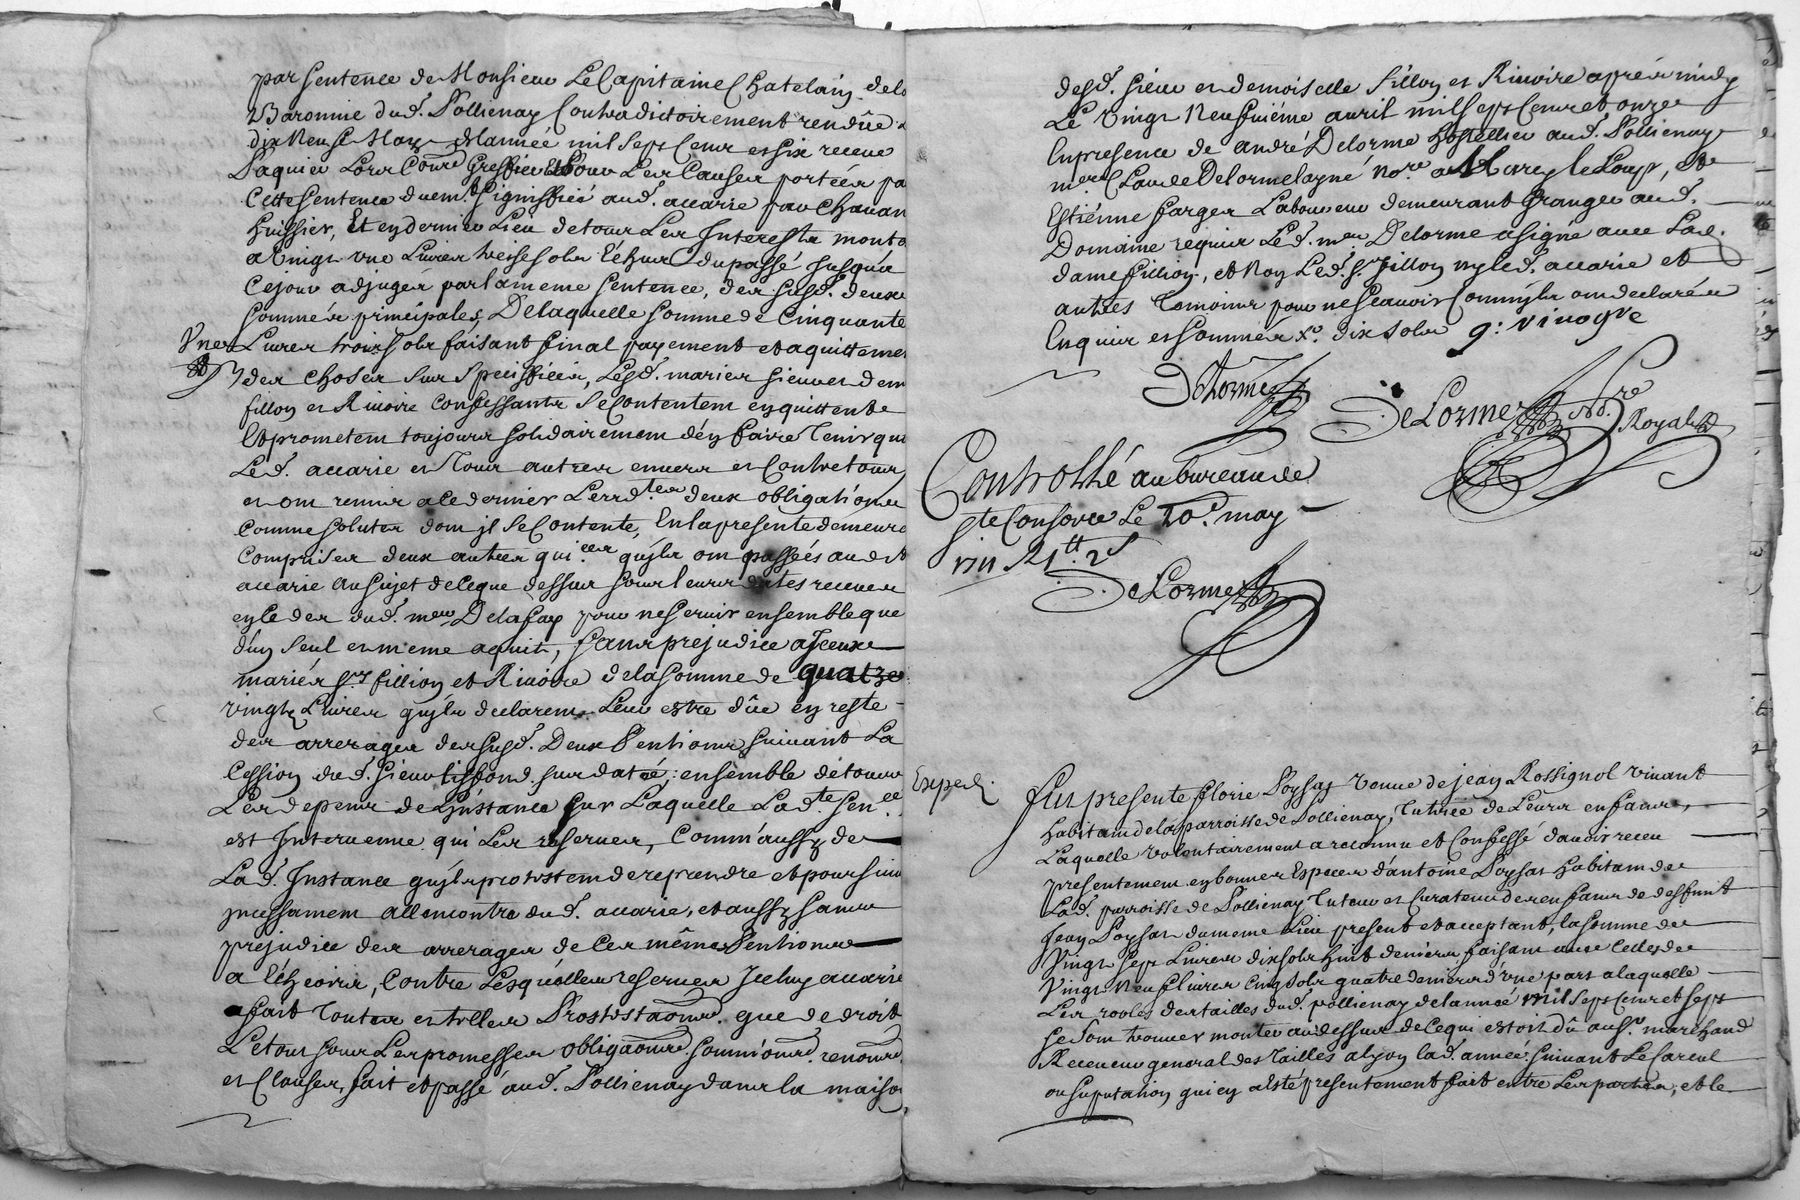 par sentence de Monsieur Le Capitaine Chatelain dela
Baronnie dud. Pollienay Contradictoirement rendüe
dix Neuf May de lannée mil sept Cent et six receue
Paquier Lors Comé Greffier Et pour Les Causes portées pa
Cette sentence duem.t signiffiéé aud. accarie par Chavan
huissier, Et en dernier Lieu de tous Les Interests monta
a Vingt une Livres treise sols Echeus du passé jusqu'a
Cejour adjugés par la meme sentence, des susd. deux
sommes principales, De laquelle somme de Cinquante
Unes Livres trois sols faisant final payement et aquittemen
des choses sur speciffiées, Lesd. mariés sieur et dem
fillon et Rivoire Confessants Se Contentent en quittent
Et prometent toujours solidairement d'en faire Tenir qui
Led. accarie et Tous autres envers et Contre tous,
et ont remis a Ce dernier Les rd.tes deux obligations
Comme solutes dont jl se Contente, En la presente demeure
Comprises deux autres qui.ces qu'jls ont passéés aud
accarie au sujet de Ce que dessus sous leurs dates receues
icelles dud. me. Delafay pour ne servir ensemble que
d'un seul et meme aquit, sans prejudice a Iceux
mariés s.rs fillion et Rivoire de la somme de quatre
vingts Livres qu'jls declarent Leur estre düe en reste
des arrerages des susd. Deux Pentions suivant La
Cession dud. sieur Lisfond sus datéé, ensemble de tous
Les depens de L'instance sur Laquelle La d.te sen.ce
est Intervenue qui Les reserves, Comm'aussy de
Lad. Instance qu'jls protestent de reprendre et poursuiv
jncessament allencontre dud. accarie, et aussy sans
prejudice des arrerages de Ces mêmes Pentions
a Echeoir, Contre Lesquelles reserves Jceluy accarie
a fait Toutes et telles Prostestãons que de droit
Le tout sous Les promesses obligãons soumi'ons renom'
et Clauses, fait et passé aud. Pollienay dans la maison
desd. sieur et demoiselle fillon et Rivoire aprés midy
Le Vingt Neufviéme avril mil sept Cent et onze
En presence de andré Delorme hostellier aud. Pollienay
mes. Claude Delorme layné no.re a Marcy le Loup, et
Estiénne farges Laboureur demeurant Granger aud.
Domaine requis Led. me. Delorme a signé avec Lad.
dame fillion, et Non Led. s.r fillon ny led. accarie et
autres Temoins pour ne scavoir Comm'jls ont declarés
Enquis et sommés x.e dix sols g: vinogre
Delorme
De Lorme No.re
Royal
Controllé au bureau de
Ste Consorce Le 10e. may
1711 R 1 tt. 2 s
De Lorme
Exped.
fut presente florie Poysat Veuve de jean Rossignol vivant
habitant de la parroisse de Pollienay, Tutrice de Leurs enfants,
Laquelle volontairement a reconnu et Confessé d'avoir receu
presentement en bonnes Especes d'antoine Poysat habitant de
Lad. parroisse de Pollienay Tuteur et Curateur des enfants de deffunt
Jean Poysat du meme Lieu present et acceptant, la somme de
Vingt sept Livres dix sols huit deniers faisant avec Celle de
Vingt Neuf livres Cinq sols quatre deniers d'une part a laquelle
Les rooles des tailles dud. pollienay de lannéé mil sept Cent et sept
se sont trouvés monter au dessus de Ce qui estoit dû au s.r marchand
Receveur general des Tailles a Lyon lad. année suivant Le Carcul
ou suputation qui en a esté presentement fait entre Les parties, et le